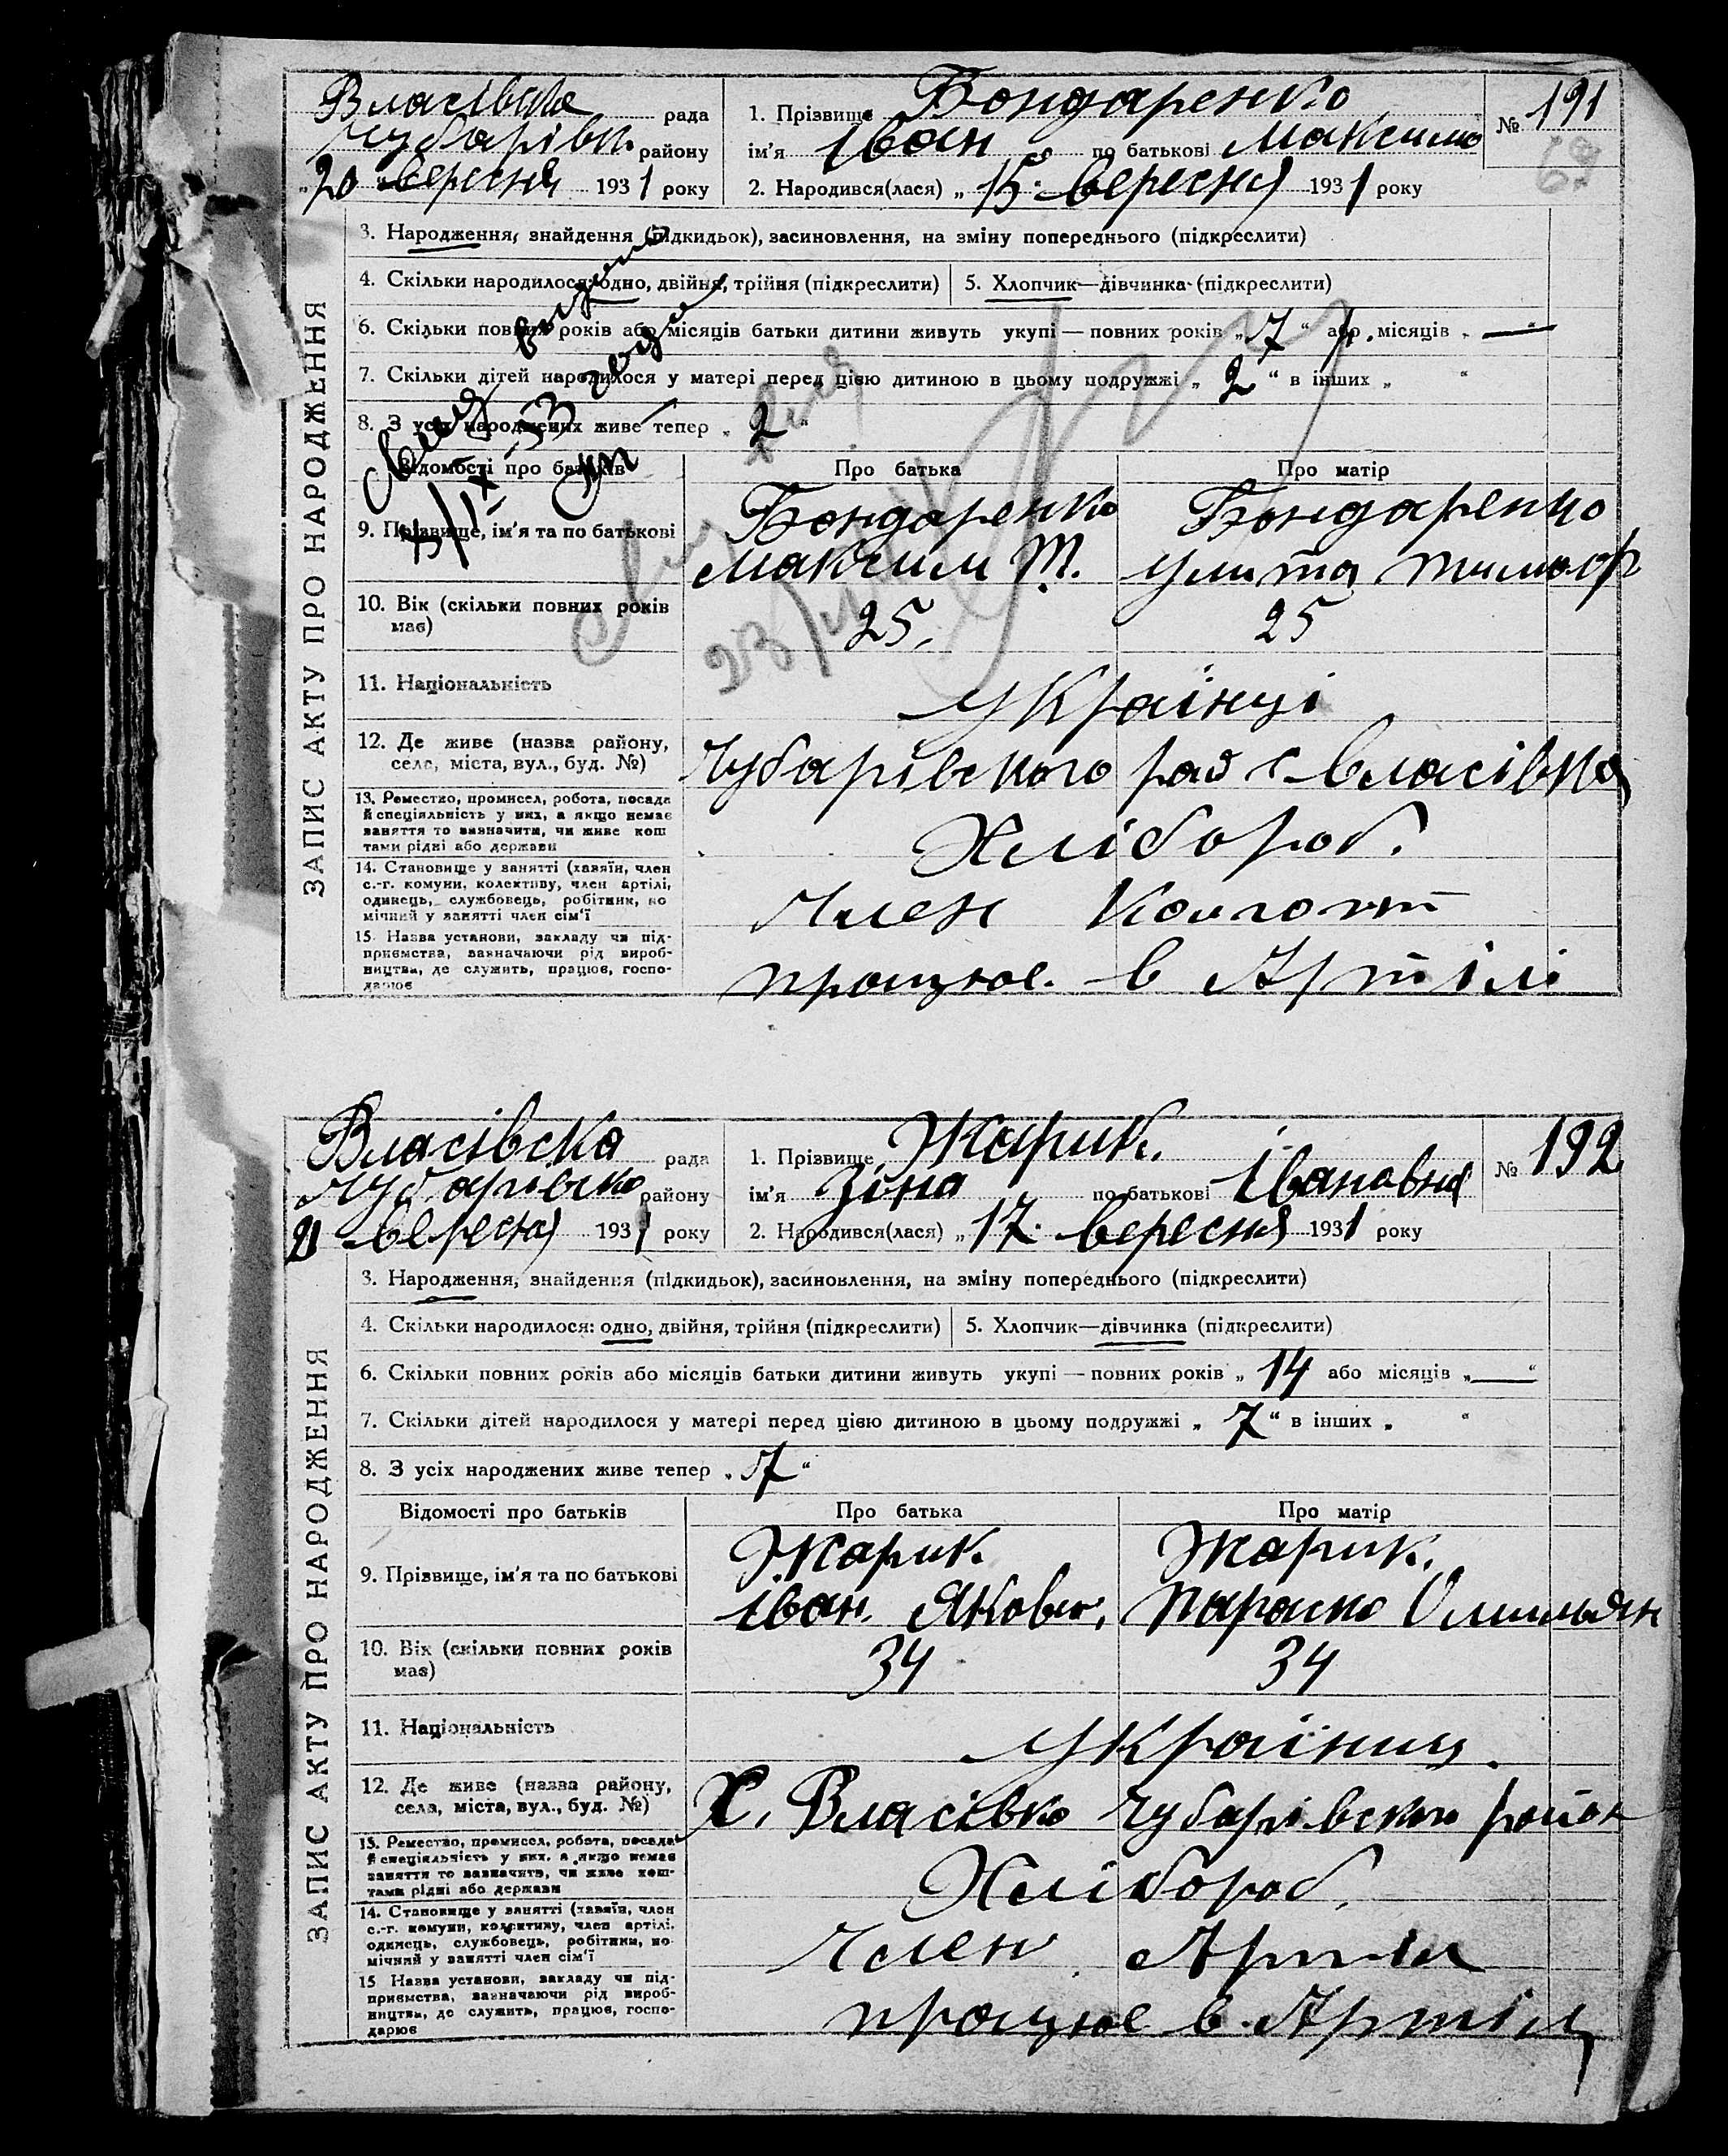 ЗАПИС АКТУ ПРО НАРОДЖЕННЯ
Власівська рада
Чубарівк. району
„20 вересня 1931 року
1. Прізвище Бондаренко
ім’я Іван по батькові Максимо
2. Народився(лася) „15. вересня 1931 року
№ 191
3. Народження, знайдення (підкидьок), засиновлення, на зміну попереднього (підкреслити)
4. Скільки народилося: одно, двійня, трійня (підкреслити)
5. Хлопчик—дівчинка (підкреслити)
6. Скільки повних років або місяців батьки дитини живуть укупі — повних років „7“ або місяців „—“
7. Скільки дітей народилося у матері перед цією дитиною в цьому подружжі „2“ в інших „ “
8. З усіх народжених живе тепер „2“
Відомості про батьків
Про батька
Про матір
9. Прізвище, ім’я та по батькові
Бондаренко
Максим Т.
Бондаренко
Улита Тимоф
10. Вік (скільки повних років має)
25.
25
11. Національність
Українці
12. Де живе (назва району, села, міста, вул., буд. №)
Чубарівського рай с Власівка
13. Ремество, промисел, робота, посада
й спеціяльність у них, а якщо немає
заняття то зазначити, чи живе кош
тами рідні або держави
Хлібороб.
14. Становище у занятті (хазяїн, член
с.-г. комуни, колективу, член артілі,
одинець, службовець, робітник, по
мічний у занятті член сім’ї
Член
15. Назва установи, закладу чи під-
приємства, зазначаючи рід вироб-
ництва, де служить, працює, госпо-
дарює
працює. в Артілі
ЗАПИС АКТУ ПРО НАРОДЖЕННЯ
Власівска рада
Чубарівско району
21 вересня 1931 року
1. Прізвище Жарик.
ім’я Зіна по батькові Івановна
2. Народився(лася) „17. вересня 1931 року
№ 192
3. Народження, знайдення (підкидьок), засиновлення, на зміну попереднього (підкреслити)
4. Скільки народилося: одно, двійня, трійня (підкреслити)
5. Хлопчик—дівчинка (підкреслити)
6. Скільки повних років або місяців батьки дитини живуть укупі — повних років „14 або місяців „—“
7. Скільки дітей народилося у матері перед цією дитиною в цьому подружжі „7“ в інших „ “
8. З усіх народжених живе тепер „7“
Відомості про батьків
Про батька
Про матір
9. Прізвище, ім’я та по батькові
Жарик.
Іван. Яковл.
Жарик.
Параска Омильян
10. Вік (скільки повних років має)
34
34
11. Національність
12. Де живе (назва району, села, міста, вул., буд. №)
Х. Власівка Чубарівского район
13. Ремество, промисел, робота, посада
й спеціяльність у них, а якщо немає
заняття то зазначить, чи живе кош-
тами рідні або держави
Хлібороб.
14. Становище у занятті (хазяїн, член
с.-г. комуни, колективу, член артілі,
одинець, службовець, робітник, по
мічний у занятті член сім’ї
Член Артіли
15 Назва установи, закладу чи під-
приємства, зазначаючи рід вироб-
ництва, де служить, працює, госпо-
дарює
працює в Артілі